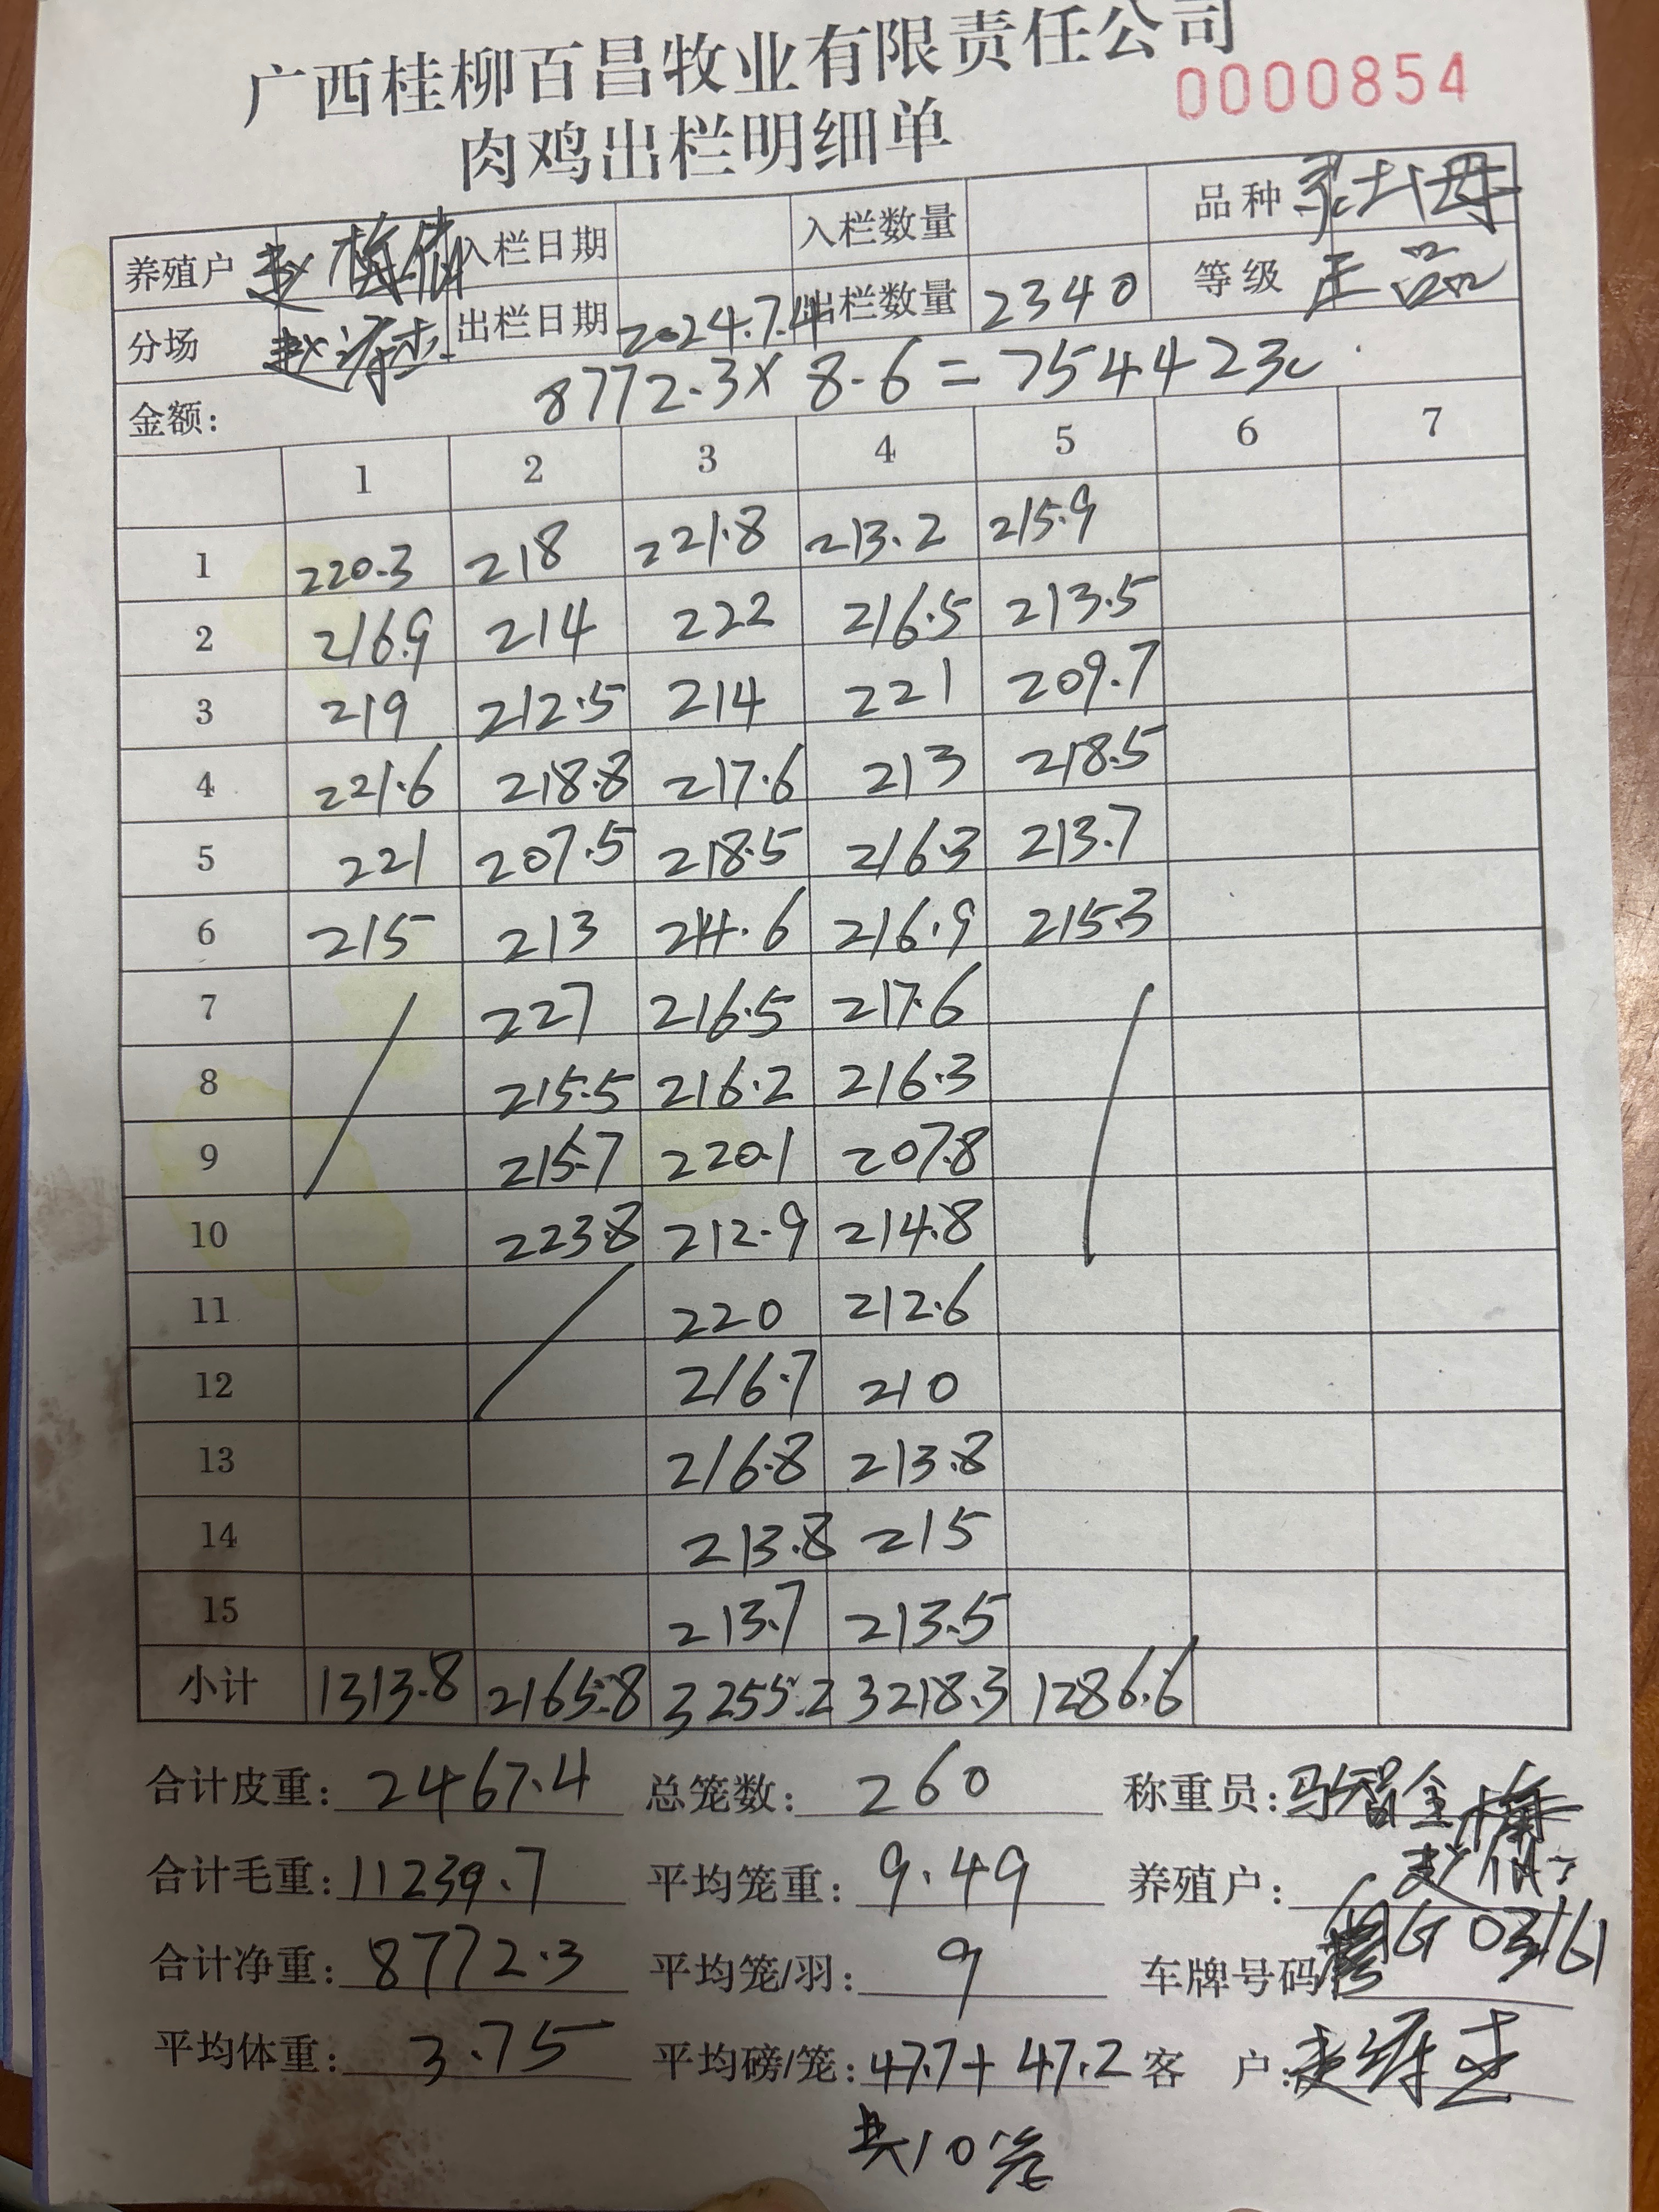 广西桂柳百昌牧业有限责任公司
0000854
肉鸡出栏明细单
养殖户 赵 入栏日期 入栏数量 品种
分场 赵 出栏日期 2024.7.4 出栏数量 2340 等级 正品
金额: 8772.3 × 8.6 = 75442.3元
1 2 3 4 5 6 7
1 220.3 218 221.8 213.2 215.9
2 216.9 214 222 216.5 213.5
3 219 212.5 214 221 209.7
4 221.6 218.8 217.6 213 218.5
5 221 207.5 218.5 216.3 213.7
6 215 213 214.6 216.9 215.3
7 227 216.5 217.6
8 215.5 216.2 216.3
9 215.7 220.1 207.8
10 223.8 212.9 214.8
11 220 212.6
12 216.7 210
13 216.8 213.8
14 213.8 215
15 213.7 213.5
小计 1313.8 2165.8 3255.2 3218.3 1286.6
合计皮重: 2467.4 总笼数: 260 称重员: 马智全
合计毛重: 11239.7 平均笼重: 9.49 养殖户: 赵
合计净重: 8772.3 平均笼/羽: 9 车牌号码 G03161
平均体重: 3.75 平均磅/笼: 47.7+47.2 客 户:
共10笼